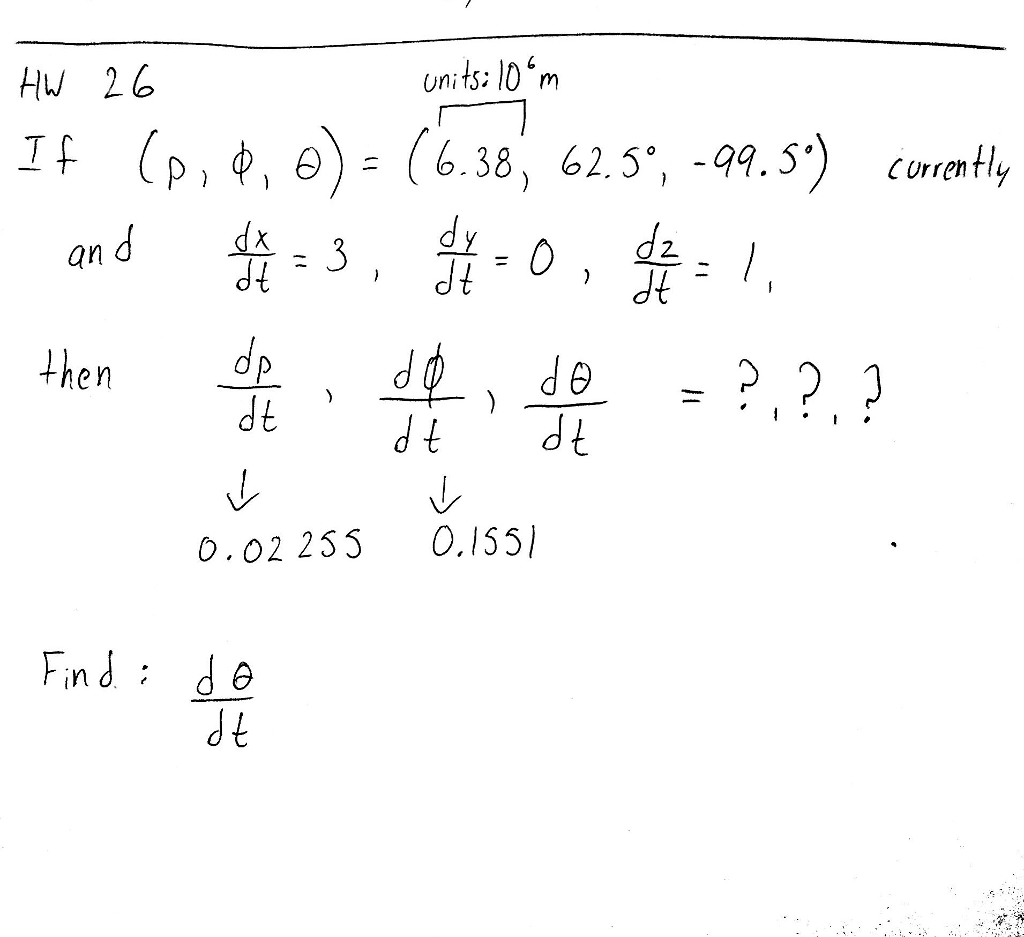 HW 26 units: 10⁶m
If (ρ, φ, θ) = (6.38, 62.5°, -99.5°) currently
and dx/dt = 3, dy/dt = 0, dz/dt = 1,
then dρ/dt, dφ/dt, dθ/dt = ?, ?, ?
↓ ↓
0.02255 0.1551
Find: dθ/dt